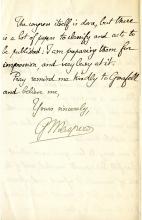 The congress itself is dora, but there
is a lot of papers to classify and acts to
be published. I am preparing them for
impression and very busy at it.
Pray remind me kindly to Grenfell
and believe me,
Yours sincerely,